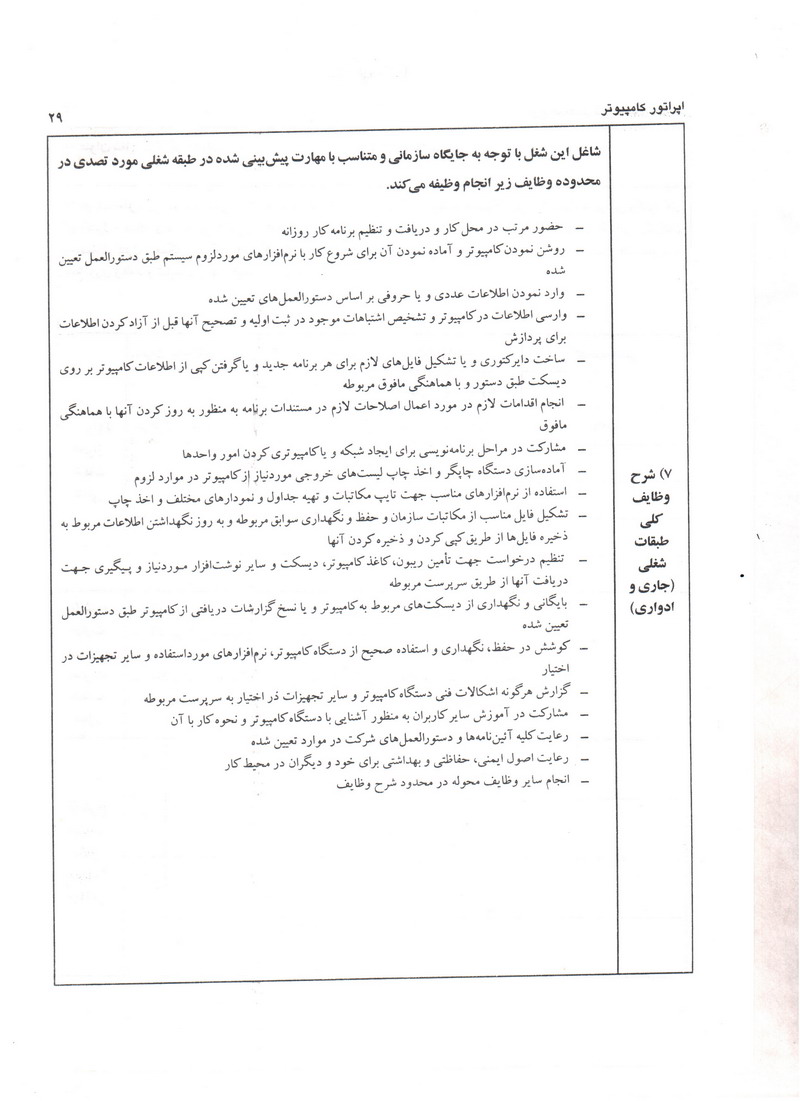 اپراتور کامپیوتر
۲۹
شاغل این شغل با توجه به جایگاه سازمانی و متناسب با مهارت پیش‌بینی شده در طبقه شغلی مورد تصدی در
محدوده وظایف زیر انجام وظیفه می‌کند.
۷) شرح
وظایف
کلی
طبقات
شغلی
(جاری و
ادواری)
– حضور مرتب در محل کار و دریافت و تنظیم برنامه کار روزانه
– روشن نمودن کامپیوتر و آماده نمودن آن برای شروع کار با نرم‌افزارهای موردلزوم سیستم طبق دستورالعمل تعیین
شده
– وارد نمودن اطلاعات عددی و یا حروفی بر اساس دستورالعمل‌های تعیین شده
– وارسی اطلاعات در کامپیوتر و تشخیص اشتباهات موجود در ثبت اولیه و تصحیح آنها قبل از آزاد کردن اطلاعات
برای پردازش
– ساخت دایرکتوری و یا تشکیل فایل‌های لازم برای هر برنامه جدید و یا گرفتن کپی از اطلاعات کامپیوتر بر روی
دیسکت طبق دستور و با هماهنگی مافوق مربوطه
– انجام اقدامات لازم در مورد اعمال اصلاحات لازم در مستندات برنامه به منظور به روز کردن آنها با هماهنگی
مافوق
– مشارکت در مراحل برنامه‌نویسی برای ایجاد شبکه و یا کامپیوتری کردن امور واحدها
– آماده‌سازی دستگاه چاپگر و اخذ چاپ لیست‌های خروجی موردنیاز از کامپیوتر در موارد لزوم
– استفاده از نرم‌افزارهای مناسب جهت تایپ مکاتبات و تهیه جداول و نمودارهای مختلف و اخذ چاپ
– تشکیل فایل مناسب از مکاتبات سازمان و حفظ و نگهداری سوابق مربوطه و به روز نگهداشتن اطلاعات مربوط به
ذخیره فایل‌ها از طریق کپی کردن و ذخیره کردن آنها
– تنظیم درخواست جهت تأمین ریبون، کاغذ کامپیوتر، دیسکت و سایر نوشت‌افزار موردنیاز و پیگیری جهت
دریافت آنها از طریق سرپرست مربوطه
– بایگانی و نگهداری از دیسکت‌های مربوط به کامپیوتر و یا نسخ گزارشات دریافتی از کامپیوتر طبق دستورالعمل
تعیین شده
– کوشش در حفظ، نگهداری و استفاده صحیح از دستگاه کامپیوتر، نرم‌افزارهای مورداستفاده و سایر تجهیزات در
اختیار
– گزارش هرگونه اشکالات فنی دستگاه کامپیوتر و سایر تجهیزات در اختیار به سرپرست مربوطه
– مشارکت در آموزش سایر کاربران به منظور آشنایی با دستگاه کامپیوتر و نحوه کار با آن
– رعایت کلیه آئین‌نامه‌ها و دستورالعمل‌های شرکت در موارد تعیین شده
– رعایت اصول ایمنی، حفاظتی و بهداشتی برای خود و دیگران در محیط کار
– انجام سایر وظایف محوله در محدود شرح وظایف